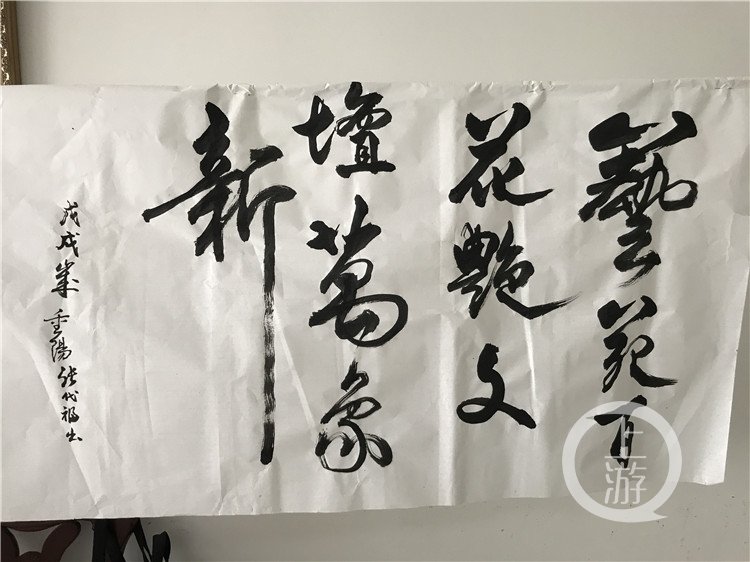 藝苑百
花艷文
壇萬象
新
戊戌歲重陽張代福書
上游